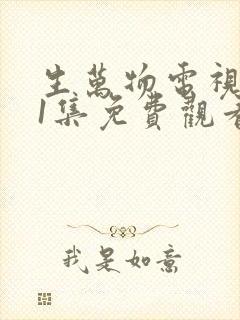 生萬物電視
1集免費觀看
我是如意